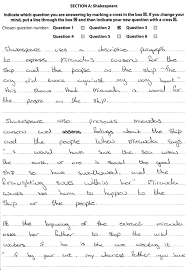 SECTION A: Shakespeare
Indicate which question you are answering by marking a cross in the box ☒. If you change your
mind, put a line through the box and then indicate your new question with a cross ☒.
Chosen question number: Question 1 Question 2 Question 3
Question 4 Question 5 Question 6
Shakespeare uses a descriptive paragraph
to express Miranda's concerns for the
ship and the people on the ship "the
cry did knock against my very heart"
this shows that Miranda is upset for
the people on the ship.
Shakespeare also presents Miranda's
concern and feelings about the ship
and the people when Miranda says
"I would have sunk the sea within
the earth, or ere it should the good
ship so have swallowed, and the
fraughting souls within her" Miranda
wants to have to happen to the
ship or the people.
At the beginning of the extract Miranda
asks her father to stop the wild
waters if he is the one working it
"if by your art, my dearest father you have